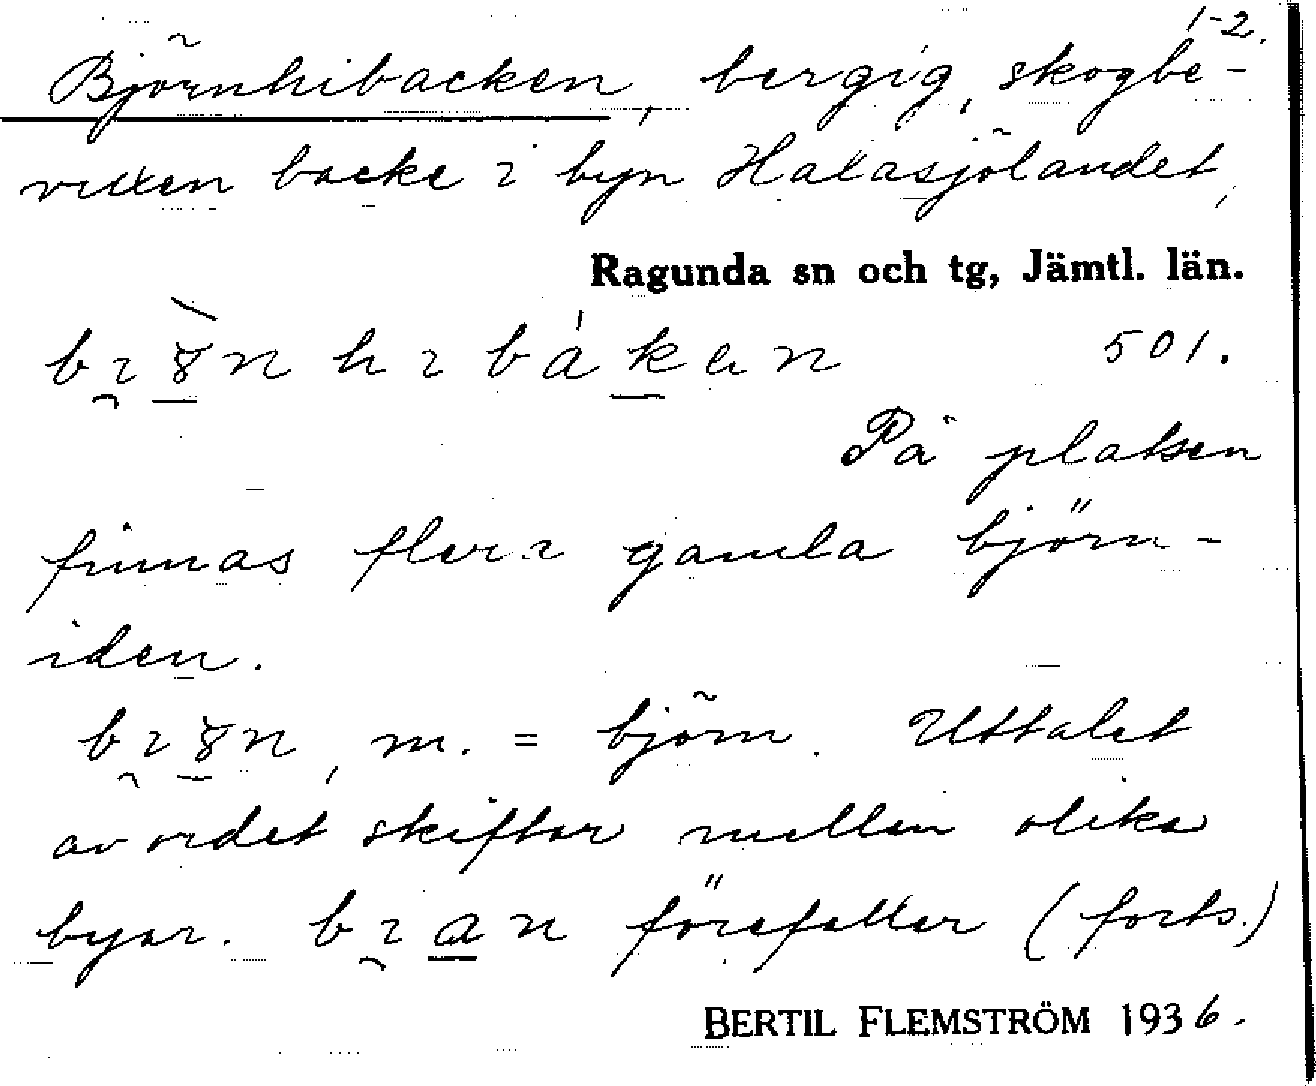 1-2.
Björnhibacken, bergig, skogbe-
vuxen backe i byn Halasjölandet,
Ragunda sn och tg, Jämtl. län.
501.
På platsen
finnas flera gamla björn-
iden.
m. = björn. Uttalet
av ordet skiftar mellan olika
byar. förefaller (forts.)
BERTIL FLEMSTRÖM 1936.